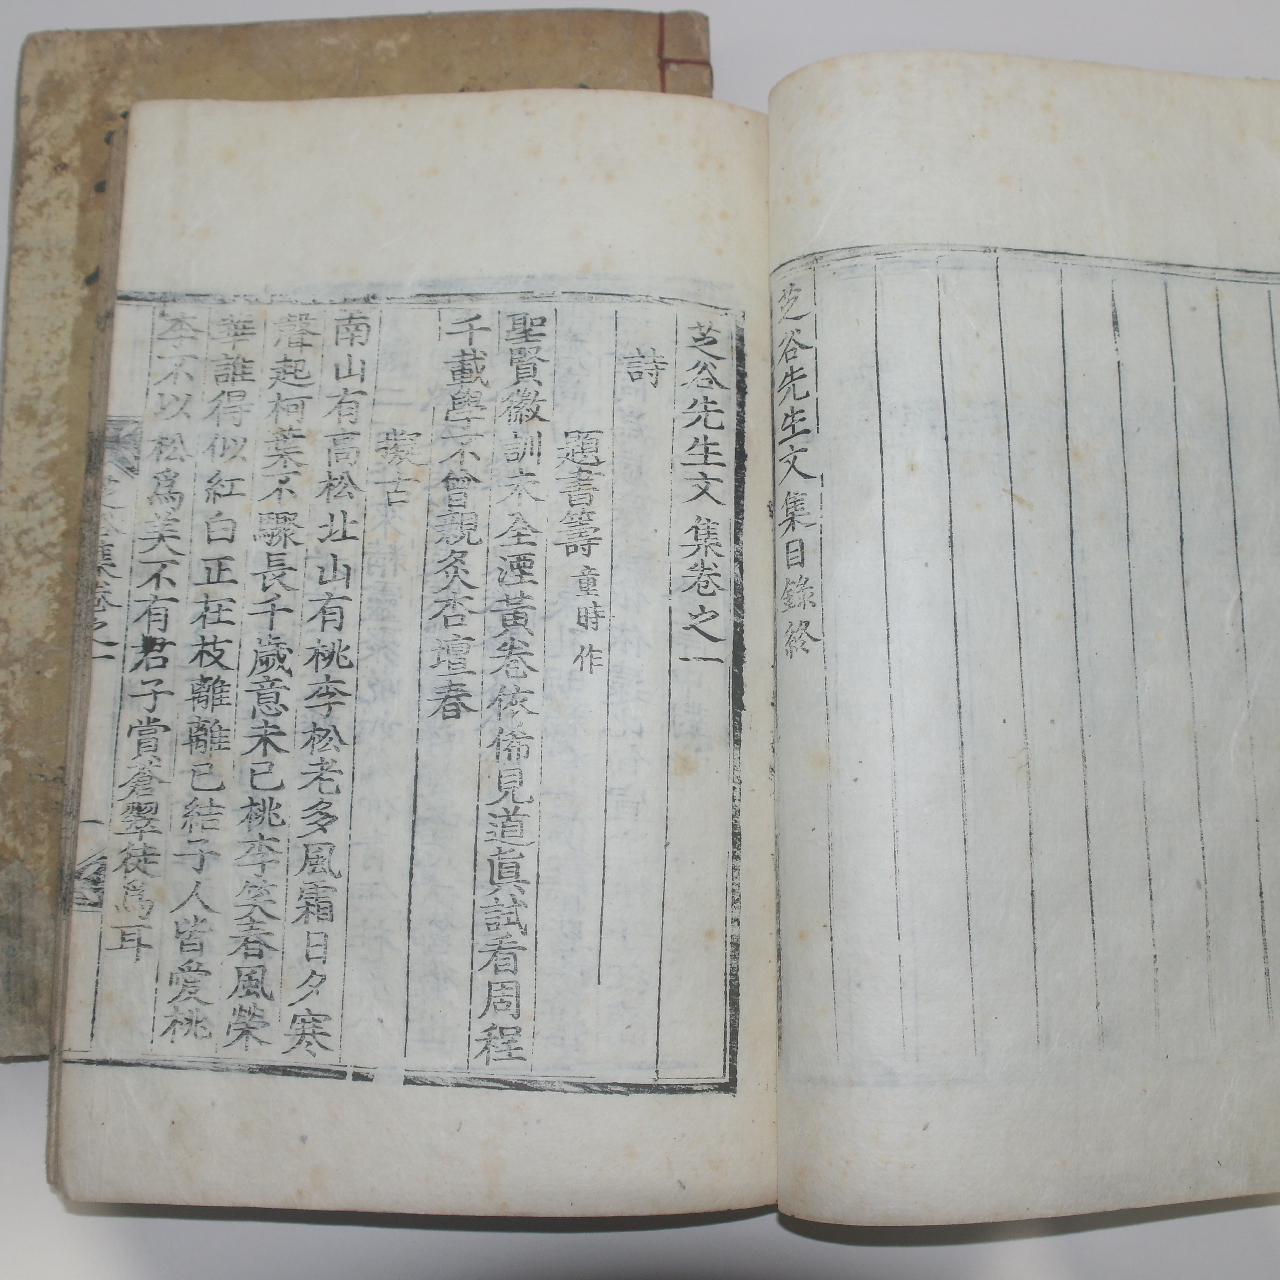 芝谷先生文集目錄終
芝谷先生文集卷之一
詩
題書籌 童時作
聖賢徽訓未全湮黃卷依俙見道眞試看周程
千載學不曾親炙杏壇春
擬古
南山有高松北山有桃李松老多風霜日夕寒
聲起柯葉不驟長千歲意未已桃李笑春風榮
華誰得似紅白正在枝離離已結子人皆愛桃
李不以松爲美不有君子賞蒼翠徒爲耳
芝谷集卷之一
一